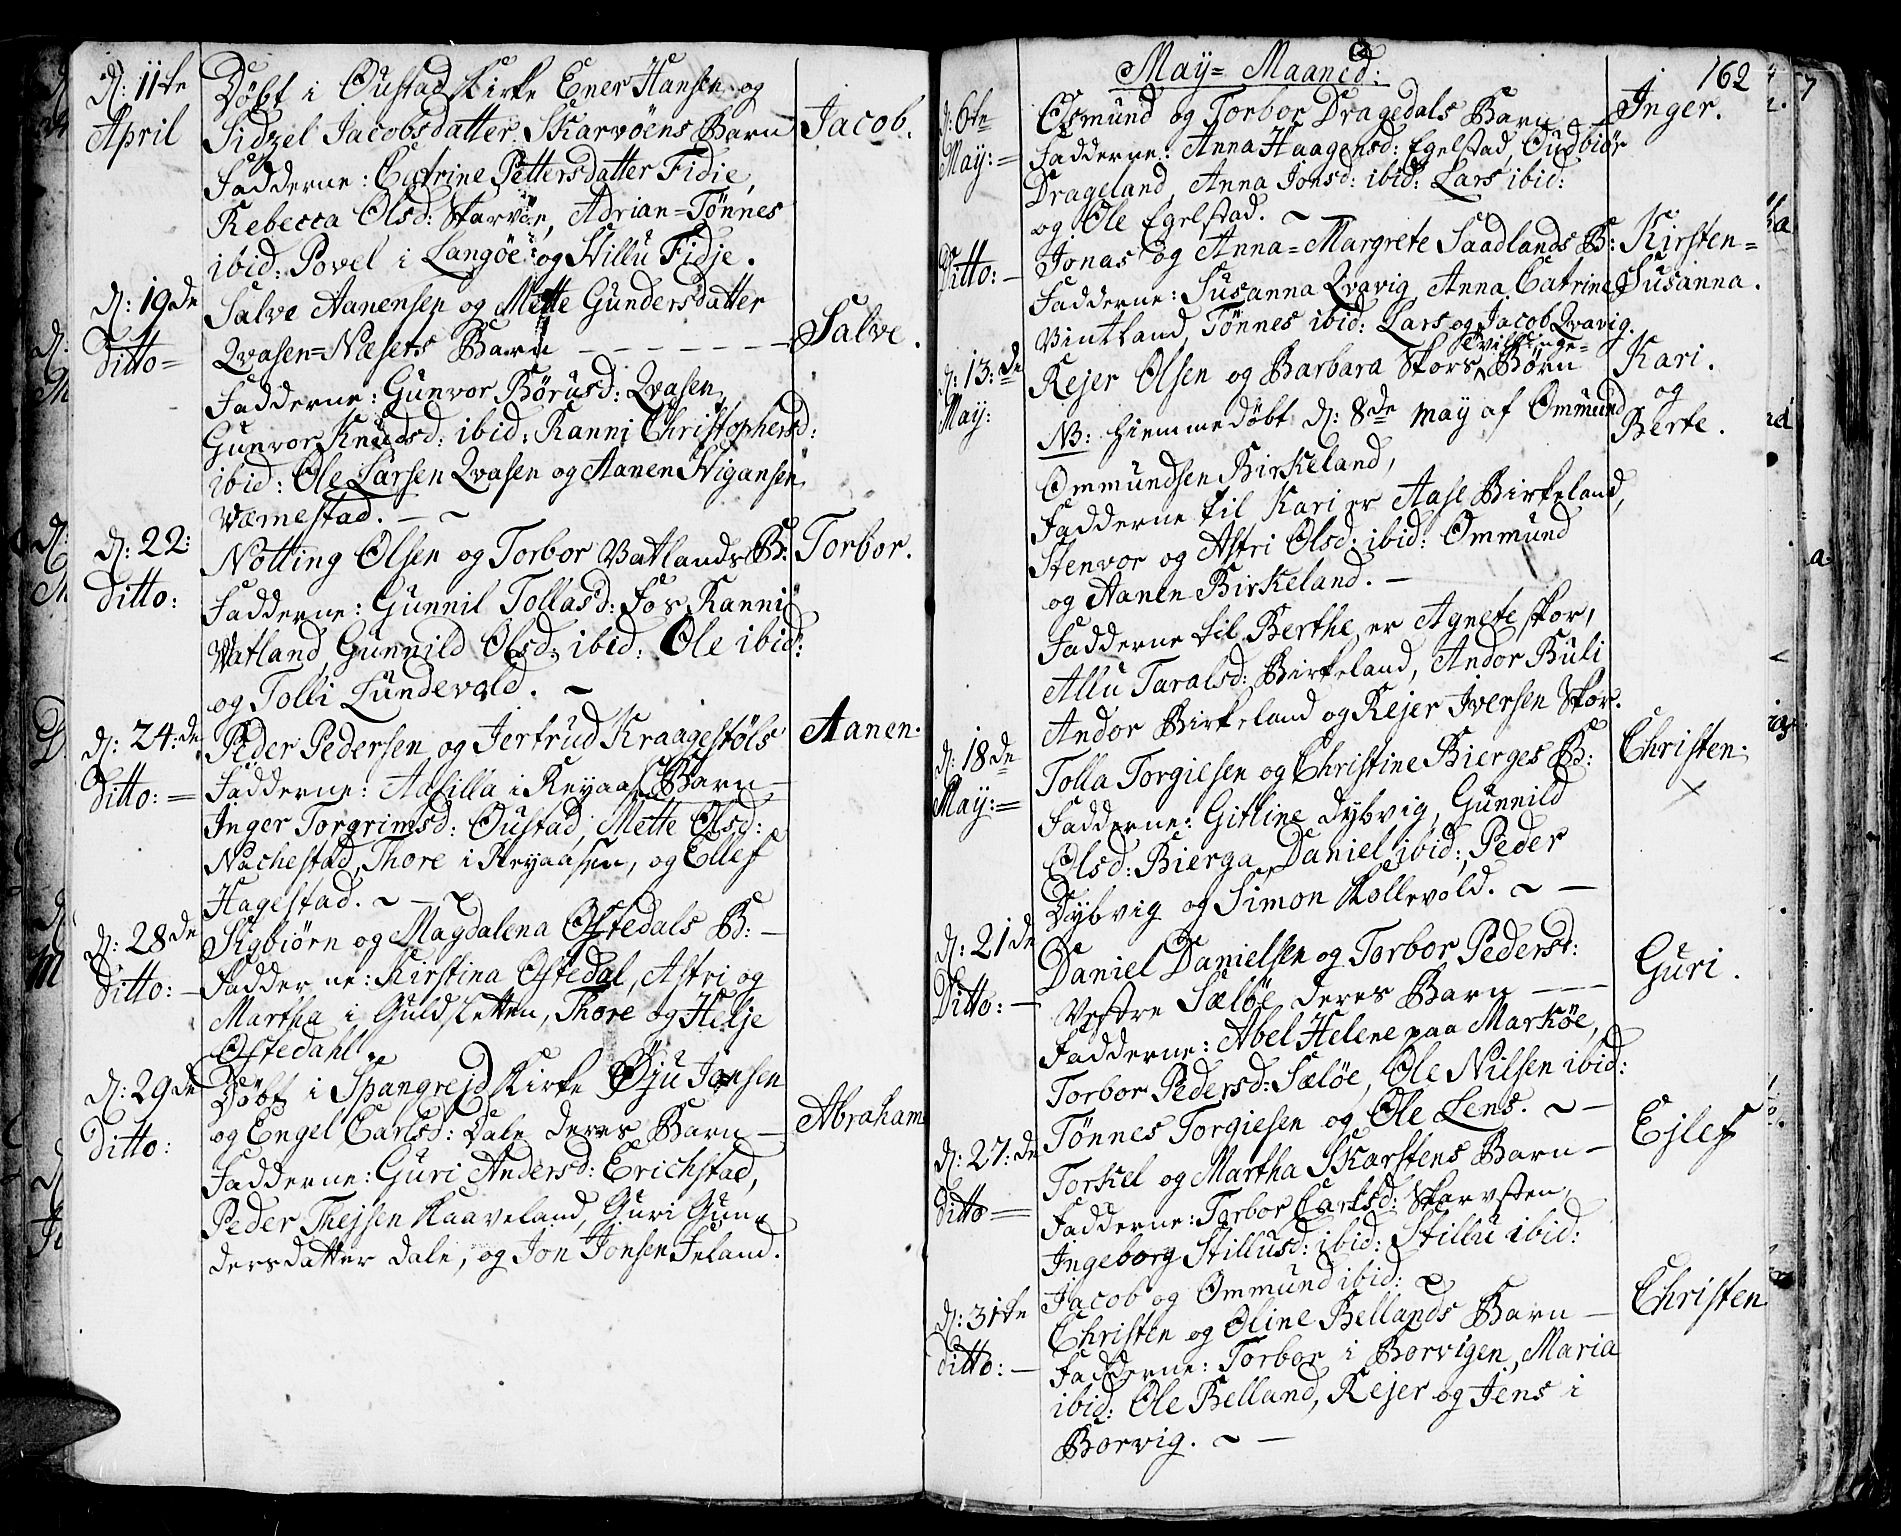 D: 11te April
Döbt i Oustad Kirke Ener Hansen og
Sidzel Jacobsdatter Skarvöens Barn Jacob.
Fadderne: Catrine Pettersdatter Fidie,
Rebecca Olsd: Skarvöe, Adrian=Tönnes
ibid: Povel i Langöe og Stillu Fidje.
D: 19de Ditto=
Salve Aanensen og Mette Gundersdatter
Qvasen=Næsets Barn - - - - - - - Salve.
Fadderne: Gunvor Börusd: Qvasen,
Gunvor Knudsd: ibid: Ranni Christophersd:
ibid: Ole Larsen Qvasen og Aanen Stigansen
Værnestad. - ~
D: 22: Ditto:
Notting Olsen og Torbor Vatlands B: Torbor.
Fadderne: Gunnil Tollasd: Fos, Ranni
Vatland, Gunnild Olsd: ibid: Ole ibid:
og Tolli Lundevold. ~
D: 24:de Ditto:=
Peder Pedersen og Jertrud Kraagestöls Aanen.
Fadderne: Adsilla i Reyaas Barn
Inger Torgrimsd: Oustad, Mette Olsd:
Nachestad, Thore i Reyaasen, og Ellef
Hagestad. ~ - ~
D: 28de Ditto: -
Sigbiörn og Magdalena Oftedals B: -
Fadderne: Kirstina Oftedal, Astri og
Martha i Guldsletten, Thore og Helje
Oftedahl.
D: 29de Ditto:
Döbt i Spangrejd Kirke Öju Jonsen
og Engel Carlsd: Dale deres Barn - Abraham
Fadderne: Guri Andersd: Erichstad,
Peder Thejsen Kaaveland, Guri Gun=
dersdatter Dale, og Jon Jonsen Jeland.
162
May= Maaned:
D: 6te May:=
Osmund og Torbor Dragedals Barn - Inger.
Fadderne: Anna Haagensd: Egelstad, Oudbiör
Drageland, Anna Jonsd: ibid: Lars ibid:
og Ole Egelstad. ~ -
Ditto: -
Jonas og Anna=Margrete Saadlands B: Kirsten=
Fadderne: Susanna Qvavig, Anna Catrine Susanna.
Vintland, Tönnes ibid: Lars og Jacob Qvavig.
D: 13:de May:
Tvillinge=
Rejer Olsen og Barbara Skors Börn Kari.
NB: Hiemmedöbt D: 8de May af Ommund og
Ommundsen Birkeland, Berte.
Fadderne til Kari er Aase Birkeland,
Stenvor og Astri Olsd: ibid: Ommund
og Aanen Birkeland. -
Fadderne til Berthe er Agnete Skor,
Allu Taralsd: Birkeland, Andor Buli
Andor Birkeland og Rejer Iversen Skor.
D: 18de May:=
Tolla Torgiesen og Christine Bierges B: Christen.
Fadderne: Gitline Dybvig, Gunnild
Olsd: Bierga, Daniel ibid: Peder
Dybvig og Simon Kollevold. ~ -
D: 21de Ditto: -
Daniel Danielsen og Torbor Pedersd:
Vestre Sælöe deres Barn - - - Guri.
Fadderne: Abel Helene paa Marköe,
Torbor Pedersd: Sælöe, Ole Nilsen ibid:
Tönnes Torgiesen og Ole Lens. ~ -
D: 27:de Ditto=
Torkel og Martha Skarstens Barn - Ejlef
Fadderne: Torbor Carlsd: Skarvsten,
Ingeborg Stillusd: ibid: Stillu ibid:
Jacob og Ommund ibid: ~
D: 31te Ditto: -
Christen og Oline Bellands Barn - Christen
Fadderne: Torbor i Borvigen, Maria
ibid: Ole Belland, Rejer og Jens i
Borvig. ~ -